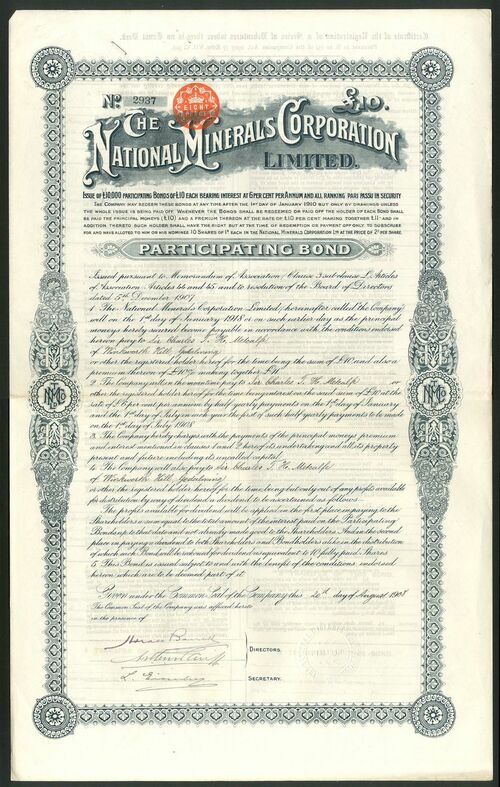 No. 2937
EIGHT
£10.
THE
NATIONAL MINERALS CORPORATION
LIMITED.
ISSUE OF £10,000 PARTICIPATING BONDS OF £10 EACH BEARING INTEREST AT 6 PER CENT PER ANNUM AND ALL RANKING PARI PASSU IN SECURITY
THE COMPANY MAY REDEEM THESE BONDS AT ANY TIME AFTER THE 1ST DAY OF JANUARY 1910 BUT ONLY BY DRAWINGS UNLESS
THE WHOLE ISSUE IS BEING PAID OFF. WHENEVER THE BONDS SHALL BE REDEEMED OR PAID OFF THE HOLDER OF EACH BOND SHALL
BE PAID THE PRINCIPAL MONEYS (£10) AND A PREMIUM THEREON AT THE RATE OF £10 PER CENT MAKING TOGETHER £11 AND IN
ADDITION THERETO SUCH HOLDER SHALL HAVE THE RIGHT BUT AT THE TIME OF REDEMPTION OR PAYMENT OFF ONLY, TO SUBSCRIBE
FOR AND HAVE ALLOTTED TO HIM OR HIS NOMINEE 10 SHARES OF 1/- EACH IN THE NATIONAL MINERALS CORPORATION LTD AT THE PRICE OF 2/- PER SHARE.
PARTICIPATING BOND
Issued pursuant to Memorandum of Association, Clause 3 sub-clause L. Articles
of Association Articles 44 and 45 and to resolution of the Board of Directors
dated 5th December 1907
1. The National Minerals Corporation Limited (hereinafter called the Company)
will on the 1st day of January 1918 or on such earlier day as the principal
moneys hereby secured become payable in accordance with the conditions endorsed
hereon pay to Sir Charles T. H. Metcalfe
of Winkworth Hill, Godalming
or other the registered holder hereof for the time being the sum of £10 and also a
premium thereon of £10% making together £11
2. The Company will in the meantime pay to Sir Charles T. H. Metcalfe or
other the registered holder hereof for the time being interest on the said sum of £10 at the
rate of £6 per cent per annum by half yearly payments on the 1st day of January
and the 1st day of July in each year the first of such half yearly payments to be made
on the 1st day of July 1908
3. The Company hereby charges with the payments of the principal moneys premium
and interest mentioned in clauses 1 and 2 hereof its undertaking and all its property
present and future including its uncalled capital.
4. The Company will also pay to Sir Charles T. H. Metcalfe
of Winkworth Hill, Godalming
or other the registered holder hereof for the time being but only out of any profits available
for distribution by way of dividend a dividend to be ascertained as follows
The profits available for dividend will be applied in the first place in paying to the
Shareholders a sum equal to the total amount of the interest paid on the Participating
Bonds up to that date and not already made good to the Shareholders. And in the second
place in paying a dividend to both Shareholders and Bondholders while in the distribution
of which each Bond will be reckoned for dividend as equivalent to 10 fully paid Shares
5. This Bond is issued subject to and with the benefit of the conditions endorsed
hereon which are to be deemed part of it
Given under the Common Seal of the Company this 20th day of August 1908
The Common Seal of the Company was affixed hereto
in the presence of
DIRECTORS.
SECRETARY.